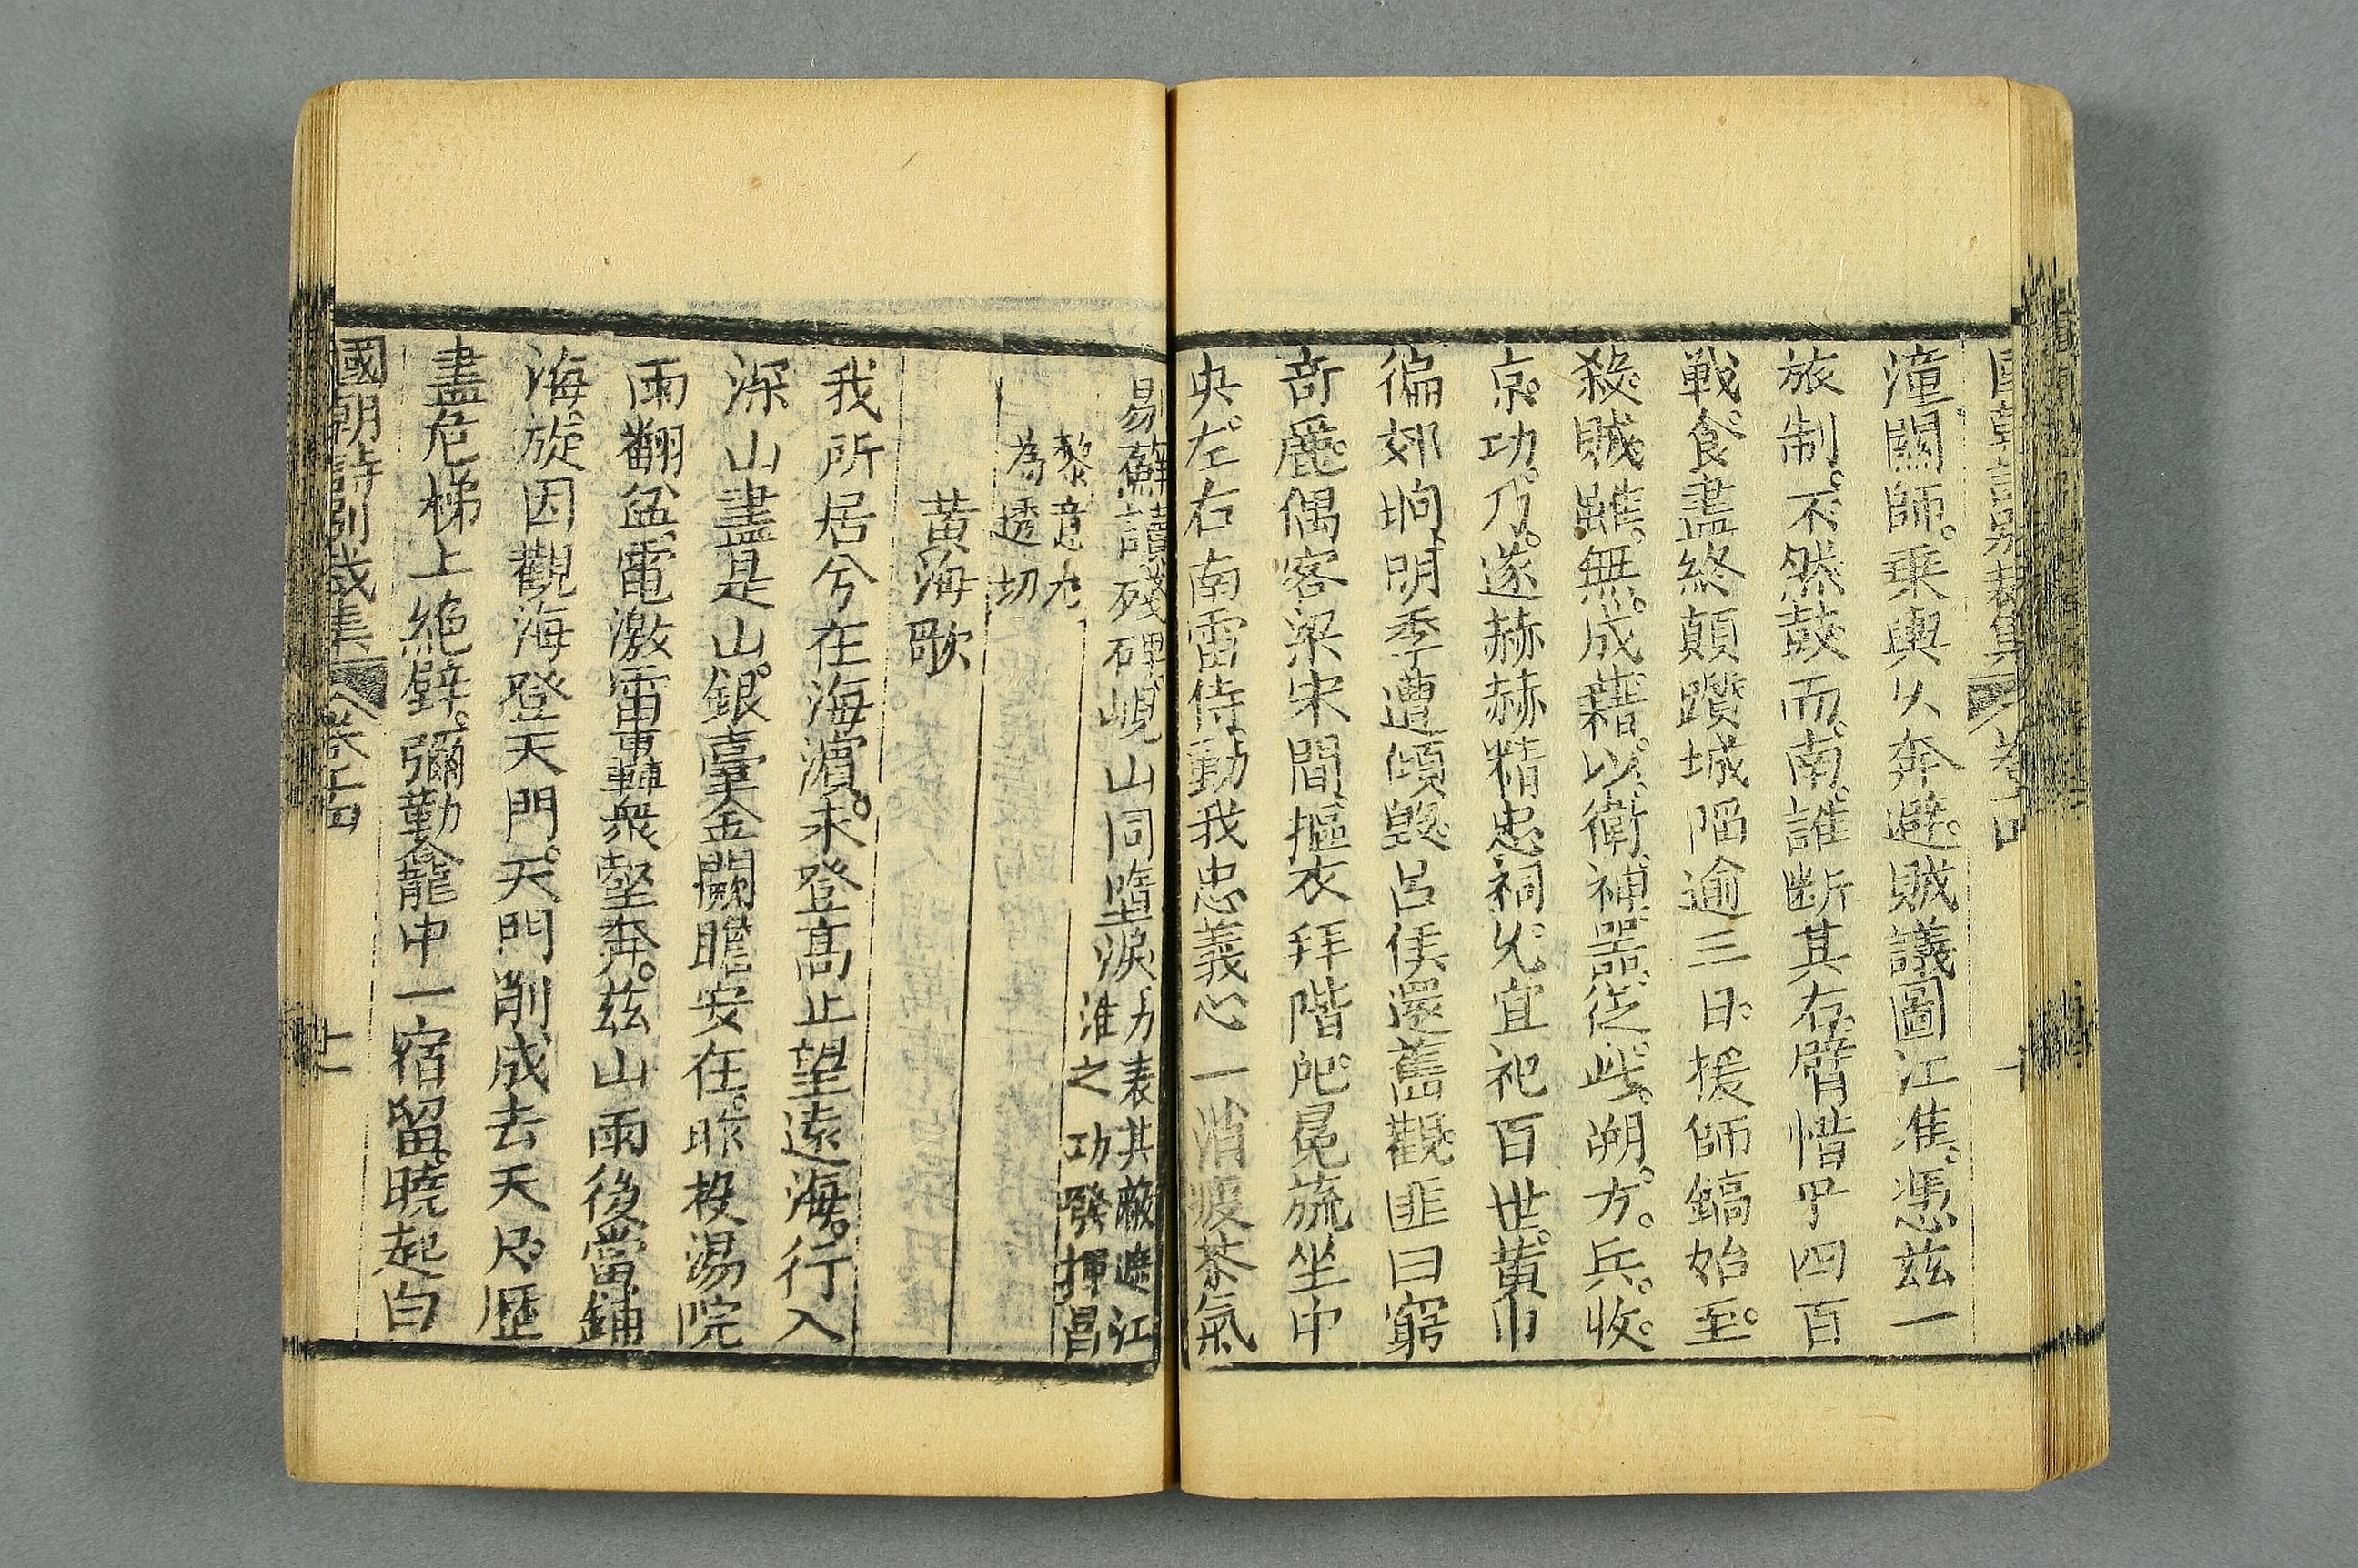 國朝詩別裁集 卷十四 十
潼關師。乗輿久奔避。賊議圖江淮。憑兹一
旅制。不然鼓而南。誰断其右臂惜乎四百
戰。食盡終顛躓城陷逾三日。援師鎬始至。
殺。賊雖。無。成藉。以。衛。補。罟。從。此。朔。方。兵。收。
京。功。乃。遂赫赫精忠祠。久。宜祀百世。黄巾
徧郊坰。明季遭傾毀。呂侯還舊觀。匪曰窮
竒麗。偶客梁宋間摳衣拜階戺。冕旒坐中
央。左右南雷侍動我忠義心一消疲苶氣
易蘇讀殘碑。峴山同墮淚
力表其蔽遮江
淮之功發揮昌
黎意尤
為透切
黄海歌
我所居兮在海濵。未登髙止望遠海。行入
深山盡是山。銀臺金闕瞻安在。昨投湯院
雨翻盆。電激雷車轉衆壑奔。兹山雨後當鋪
海。旋因觀海登天門。天門削成去天尺。歷
盡危梯上絶壁。彌勤龕中一宿留。曉起白
國朝詩別裁集 卷十四 十一